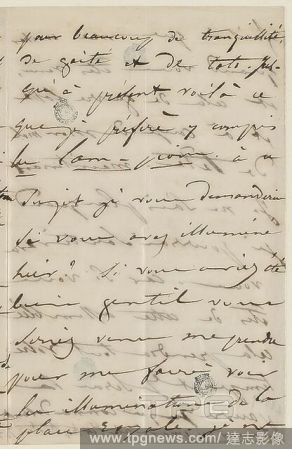 pour beaucoup de tranquillité,
de gaité et de tots. Jus-
qu'à présent voilà ce
que je préfère y compris
le
Projet je vous demanderai
si vous avez illuminé
hier? Si vous aviez été
bien gentil vous
seriez venu me prendre
pour me faire voir
les illuminations de la
place
www.tpgnews.com / 達志影像